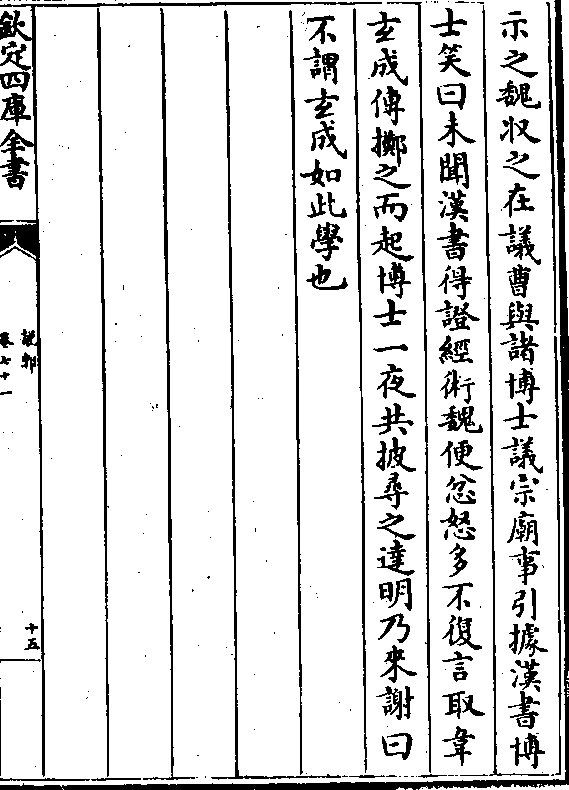 示之魏収之在議曹與諸博士議宗廟事引據漢書博
士笑曰未聞漢書得證經術魏便忿怒多不復言取韋
玄成傳擲之而起博士一夜共披尋之達明乃來謝曰
不謂玄成如此學也
欽定四庫全書
說郛
卷七十一
十五